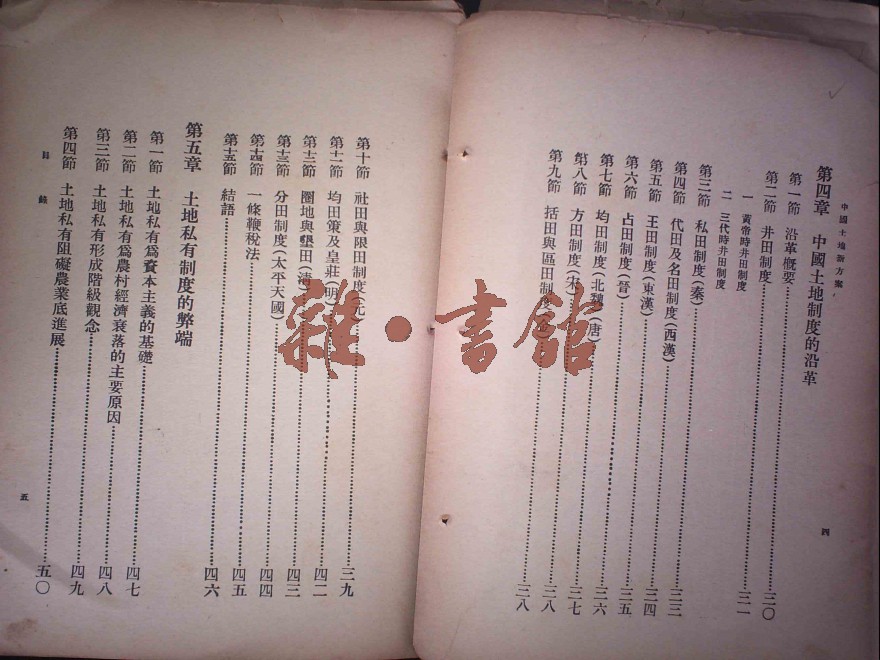 中國土地新方案
第四章 中國土地制度的沿革
第一節 沿革概要……三〇
第二節 井田制度……三一
一 黃帝時井田制度
二 三代時井田制度
第三節 私田制度(秦)
第四節 代田及名田制度(西漢)……三三
第五節 王田制度(東漢)……三四
第六節 占田制度(晉)……三五
第七節 均田制度(北魏)(唐)……三六
第八節 方田制度(宋)……三七
第九節 括田與區田制……三八
四
第十節 社田與限田制度(元)……三九
第十一節 均田策及皇莊(明)……四二
第十二節 圈地與墾田(清)……四三
第十三節 分田制度(太平天國)……四四
第十四節 一條鞭稅法……四五
第十五節 結語……四六
第五章 土地私有制度的弊端
第一節 土地私有爲資本主義的基礎……四七
第二節 土地私有爲農村經濟衰落的主要原因……四八
第三節 土地私有形成階級觀念……四九
第四節 土地私有阻礙農業底進展……五〇
目錄
五
雜·書館